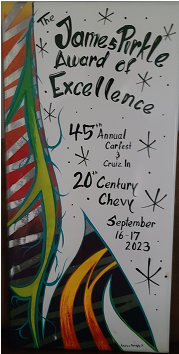 The
James Pirkle
Award of
Excellence
45th Annual
Carfest
&
Cruiz In
20th Century
Chevy
September
16-17
2023